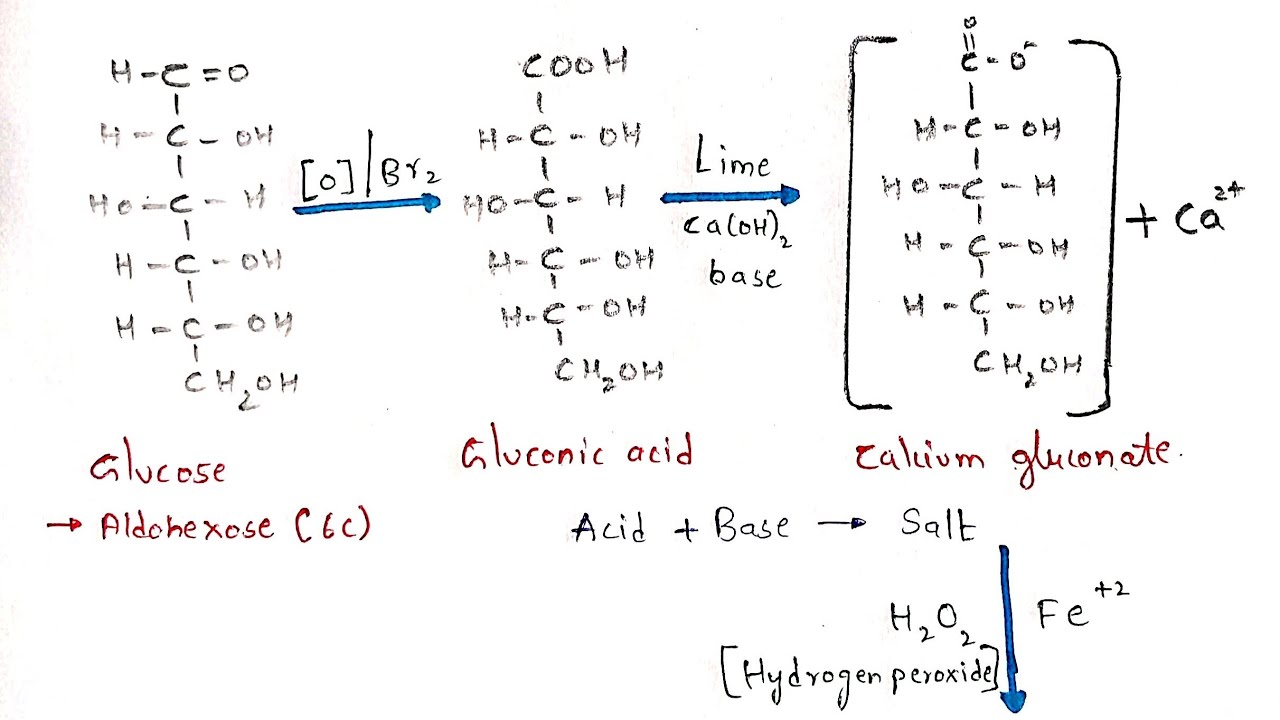 H-C=O
H-C-OH
HO-C-H
H-C-OH
H-C-OH
CH₂OH
Glucose
→ Aldohexose (6C)
[O]|Br₂
COOH
H-C-OH
HO-C-H
H-C-OH
H-C-OH
CH₂OH
Gluconic acid
Lime
Ca(OH)₂
base
O
C-O⁻
H-C-OH
HO-C-H
H-C-OH
H-C-OH
CH₂OH
+ Ca²⁺
Calcium gluconate.
Acid + Base → Salt
H₂O₂
Fe⁺²
[Hydrogen peroxide]